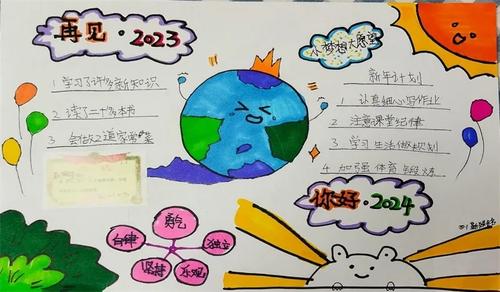 再见·2023
1 学习了许多新知识
2 读了二十多本书
3 会做2道家常菜
小梦想大愿望
新年计划
1 认真细心写作业
2 注意课堂纪律
3 学习生活做规划
4 加强体育锻炼
你好·2024
勇气
自律
独立
坚持
乐观